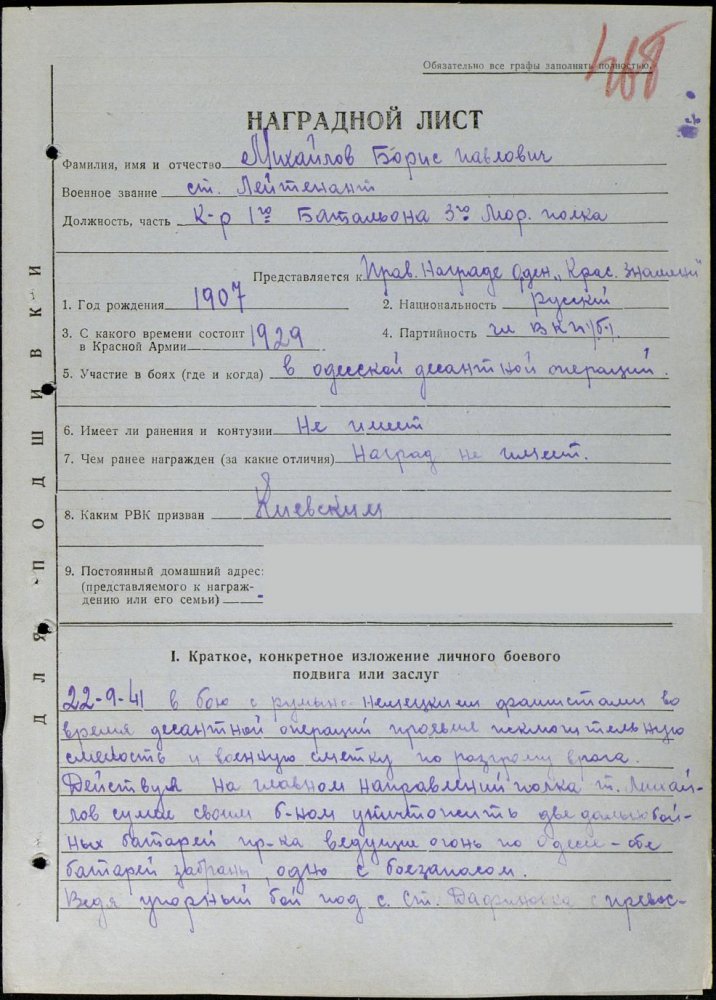 468
Обязательно все графы заполнять полностью.
НАГРАДНОЙ ЛИСТ
Фамилия, имя и отчество Михайлов Борис Павлович
Военное звание ст. Лейтенант
Должность, часть К-р 1го Батальона 3го Мор. полка
Представляется к Прав. Награде Орден „Крас. Знамений"
1. Год рождения 1907 2. Национальность русский
3. С какого времени состоит в Красной Армии 1929 4. Партийность чл ВКП(б).
5. Участие в боях (где и когда) в одесской десантной операций.
6. Имеет ли ранения и контузии Не имеет
7. Чем ранее награжден (за какие отличия) Наград не имеет.
8. Каким РВК призван Киевским
9. Постоянный домашний адрес:
(представляемого к награж-
дению или его семьи)
ДЛЯ ПОДШИВКИ
I. Краткое, конкретное изложение личного боевого
подвига или заслуг
22-9-41 в бою с румыно-немецкими фашистами во
время десантной операций проявил исключительную
смелость и военную сметку по разгрому врага.
Действуя на главном направлений полка т. Михай-
лов сумел своим б-ном уничтожить две дальнобой-
ных батарей пр-ка ведущие огонь по Одессе - обе
батарей забраны, одно с боезапасом.
Ведя упорный бой под с. Ст. Дафиновка с превос-